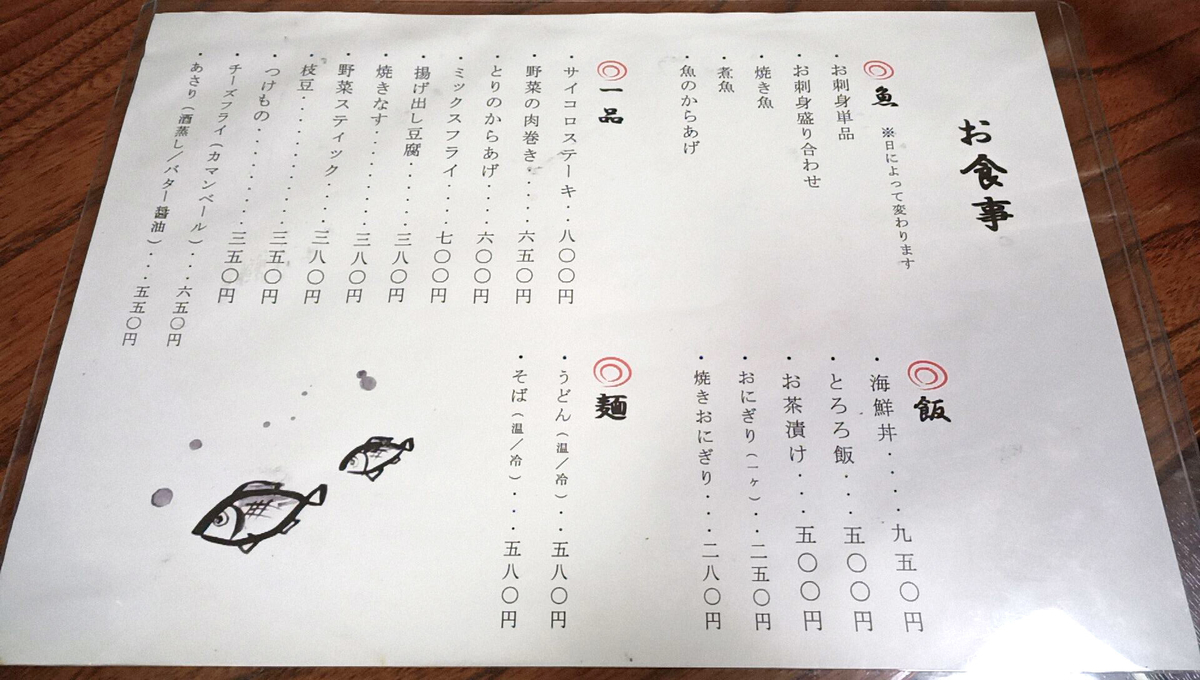 お食事
魚 ※日によって変わります
・お刺身単品
・お刺身盛り合わせ
・焼き魚
・煮魚
・魚のからあげ
一品
・サイコロステーキ・・八〇〇円
・野菜の肉巻き・・・・六五〇円
・とりのからあげ・・・・六〇〇円
・ミックスフライ・・・・七〇〇円
・揚げ出し豆腐・・・・・三八〇円
・焼きなす・・・・・・・・三八〇円
・野菜スティック・・・・三八〇円
・枝豆・・・・・・・・・・・三八〇円
・つけもの・・・・・・・・三五〇円
・チーズフライ（カマンベール）・・・六五〇円
・あさり（酒蒸し／バター醤油）・・・・五五〇円
飯
・海鮮丼・・・・九五〇円
・とろろ飯・・・五〇〇円
・お茶漬け・・・五〇〇円
・おにぎり（一ヶ）・・・二五〇円
・焼きおにぎり・・・・二八〇円
麺
・うどん（温／冷）・・・五八〇円
・そば（温／冷）・・・五八〇円